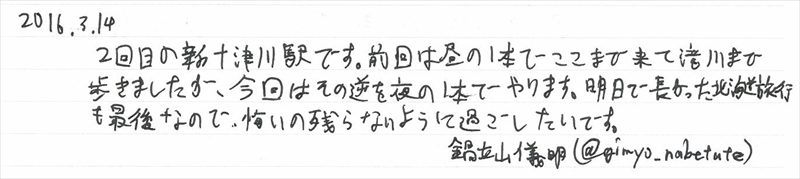 2016.3.14
2回目の新十津川駅です。前回は昼の1本でここまで来て滝川まで
歩きましたが、今回はその逆を夜の1本でやります。明日で長かった北海道旅行
も最後なので、悔いの残らないように過ごしたいです。
鍋立山儀明(@gimyo_nabetate)